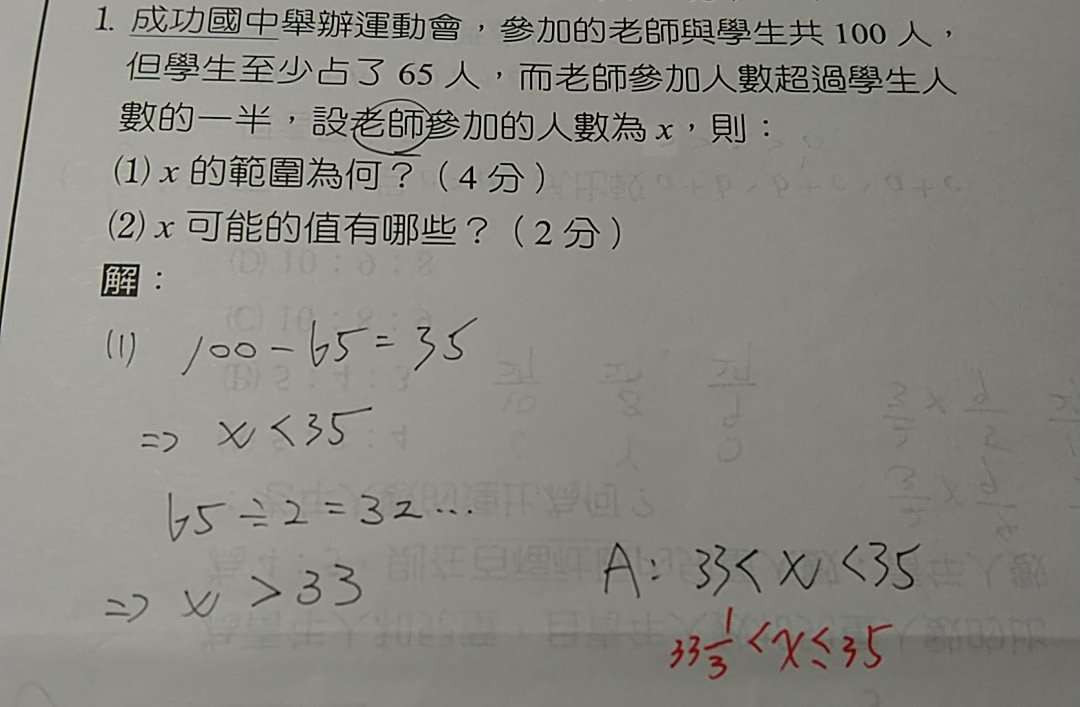 1. 成功國中舉辦運動會，參加的老師與學生共 100 人，
但學生至少占了 65 人，而老師參加人數超過學生人
數的一半，設老師參加的人數為 x，則：
(1) x 的範圍為何？（4 分）
(2) x 可能的值有哪些？（2 分）
解：
(1) 100－65＝35
⇒ x＜35
65÷2＝32…
⇒ x＞33
A：33＜x＜35
33 1/3＜x≤35